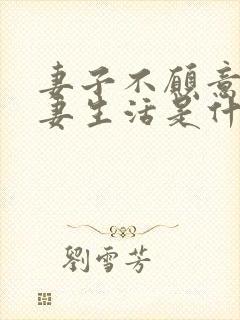 妻子不願意
妻生活是什
劉雪芳